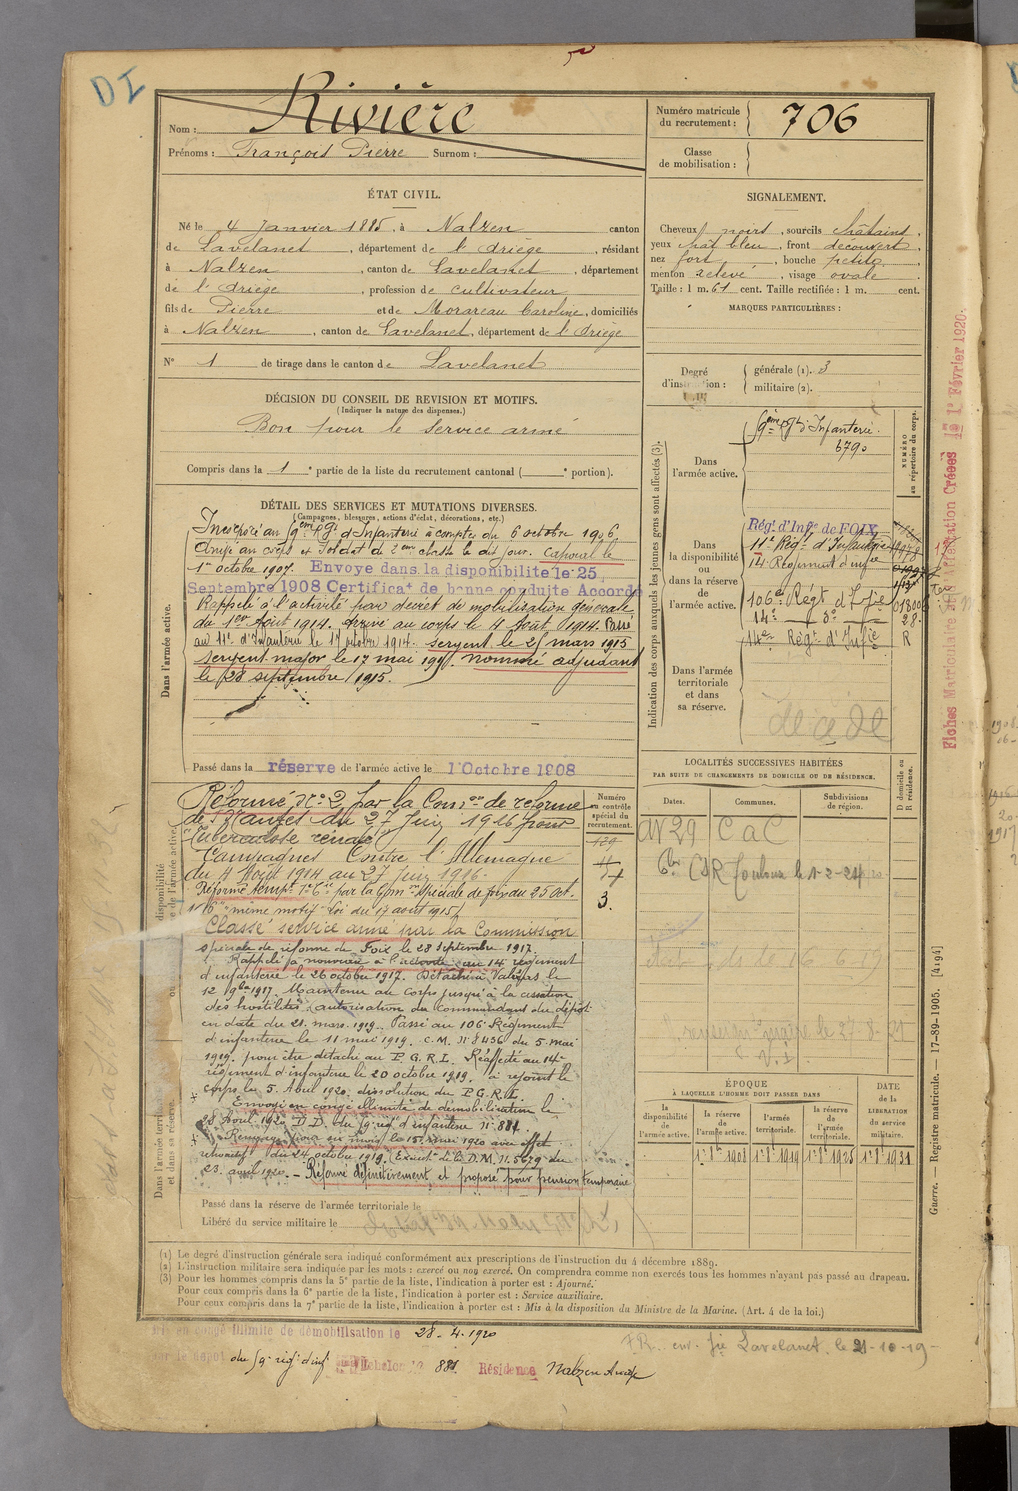 DI
Nom : Rivière
Prénoms : François Pierre Surnom :
Numéro matricule du recrutement : 706
Classe de mobilisation :
ÉTAT CIVIL.
Né le 4 Janvier 1885, à Nalzen canton
de Lavelanet, département de l'Ariège, résidant
à Nalzen, canton de Lavelanet, département
de l'Ariège, profession de cultivateur
fils de Pierre et de Morareau Caroline, domiciliés
à Nalzen, canton de Lavelanet, département de l'Ariège
N° 1 de tirage dans le canton de Lavelanet
SIGNALEMENT.
Cheveux noirs, sourcils châtains,
yeux chât bleu, front découvert,
nez fort, bouche petite,
menton relevé, visage ovale
Taille : 1 m. 61 cent. Taille rectifiée : 1 m. cent.
MARQUES PARTICULIÈRES :
Degré d'instruction : générale (1). 3
militaire (2).
DÉCISION DU CONSEIL DE REVISION ET MOTIFS.
(Indiquer la nature des dispenses.)
Bon pour le service armé
Compris dans la 1e partie de la liste du recrutement cantonal ( e portion).
DÉTAIL DES SERVICES ET MUTATIONS DIVERSES.
(Campagnes, blessures, actions d'éclat, décorations, etc.)
Incorporé au 59ème Rgt d'Infanterie à compter du 6 octobre 1906
Arrivé au corps et Soldat de 2eme classe le dit jour. Caporal le
1er octobre 1907. Envoyé dans la disponibilité le 25
Septembre 1908 Certificat de bonne conduite Accordé
Rappelé à l'activité par décret de mobilisation générale
du 1er Août 1914. Arrivé au corps le 4 Août 1914. Passé
au 11e d'Infanterie le 17 octobre 1914. sergent le 25 mars 1915
sergent major le 17 mai 1915. nommé adjudant
le 28 septembre 1915.
Dans l'armée active.
Passé dans la réserve de l'armée active le 1 Octobre 1908
Indication des corps auxquels les jeunes gens sont affectés (3).
NUMÉRO au répertoire du corps.
Dans l'armée active.
59ème Rgt d'Infanterie.
6790
Dans la disponibilité ou dans la réserve de l'armée active.
Rég. d'Infie de FOIX
11e Régt d'Infanterie
14 Régiment d'infie
106e Régt d'Infie 01800
14e do 28
14e Régt d'Infie R
Dans l'armée territoriale et dans sa réserve.
décédé
Fiches Matriculaire et d'Affectation Créées le 1er Février 1920.
Réformé n° 2 par la Comson de réforme
de Nantes du 27 Juin 1916 pour
Tuberculose rénale
Campagnes Contre l'Allemagne
du 4 Août 1914 au 27 Juin 1916.
Réformé tempre 1e Cie par la Comon Spéciale de foix du 25 Oct.
1916 "même motif" Loi du 17 août 1915
Classé service armé par la Commission
spéciale de réforme de Foix le 28 septembre 1917.
Rappelé à nouveau à l'activité au 14 régiment
d'infanterie le 26 octobre 1917. Détaché à le
12 9bre 1917. Maintenu au corps jusqu'à la cessation
des hostilités, autorisation du Commandant du dépôt
en date du 21. mars. 1919. Passé au 106e Régiment
d'infanterie le 11 mai 1919. C.M. n° 8436 du 5 mai
1919. pour être détaché au P.G.R.L. Réaffecté au 14e
régiment d'infanterie le 20 octobre 1919. à rejoint le
corps le 5. Avril 1920. dissolution du P.G.R.L.
Envoyé en congé illimité de démobilisation le
28 Avril 1920 D.D. du 59 rég. d'infanterie n° 881.
Rengagé pour six mois le 15 mai 1920 avec effet
rétroactif du 24 octobre 1919. (Exécut. de la D.M. 11.5679 du
23. avril 1920. — Réformé définitivement et proposé pour pension temporaire
Numéro au contrôle spécial du recrutement.
3.
LOCALITÉS SUCCESSIVES HABITÉES
PAR SUITE DE CHANGEMENTS DE DOMICILE OU DE RÉSIDENCE.
Dates. Communes. Subdivisions de région. D domicile ou R résidence.
CaC
CSR Toulouse le 1-2-24
ÉPOQUE
À LAQUELLE L'HOMME DOIT PASSER DANS
la disponibilité de l'armée active. la réserve de l'armée active. l'armée territoriale. la réserve de l'armée territoriale.
DATE de la LIBÉRATION du service militaire.
1er 8bre 1908 1er 8bre 1919 1er 8bre 1925 1er 8bre 1931
Passé dans la réserve de l'armée territoriale le
Libéré du service militaire le
Guerre. — Registre matricule. — 17-89-1905. [4194]
(1) Le degré d'instruction générale sera indiqué conformément aux prescriptions de l'instruction du 4 décembre 1889.
(2) L'instruction militaire sera indiquée par les mots : exercé ou non exercé. On comprendra comme non exercés tous les hommes n'ayant pas passé au drapeau.
(3) Pour les hommes compris dans la 5e partie de la liste, l'indication à porter est : Ajourné.
Pour ceux compris dans la 6e partie de la liste, l'indication à porter est : Service auxiliaire.
Pour ceux compris dans la 7e partie de la liste, l'indication à porter est : Mis à la disposition du Ministre de la Marine. (Art. 4 de la loi.)
en congé illimité de démobilisation le 28-4-1920
par le dépôt du 59e rég. d'inf. Echelon n° 881. Résidence Nalzen Ariège
FR. env. Gie Lavelanet le 21-10-19